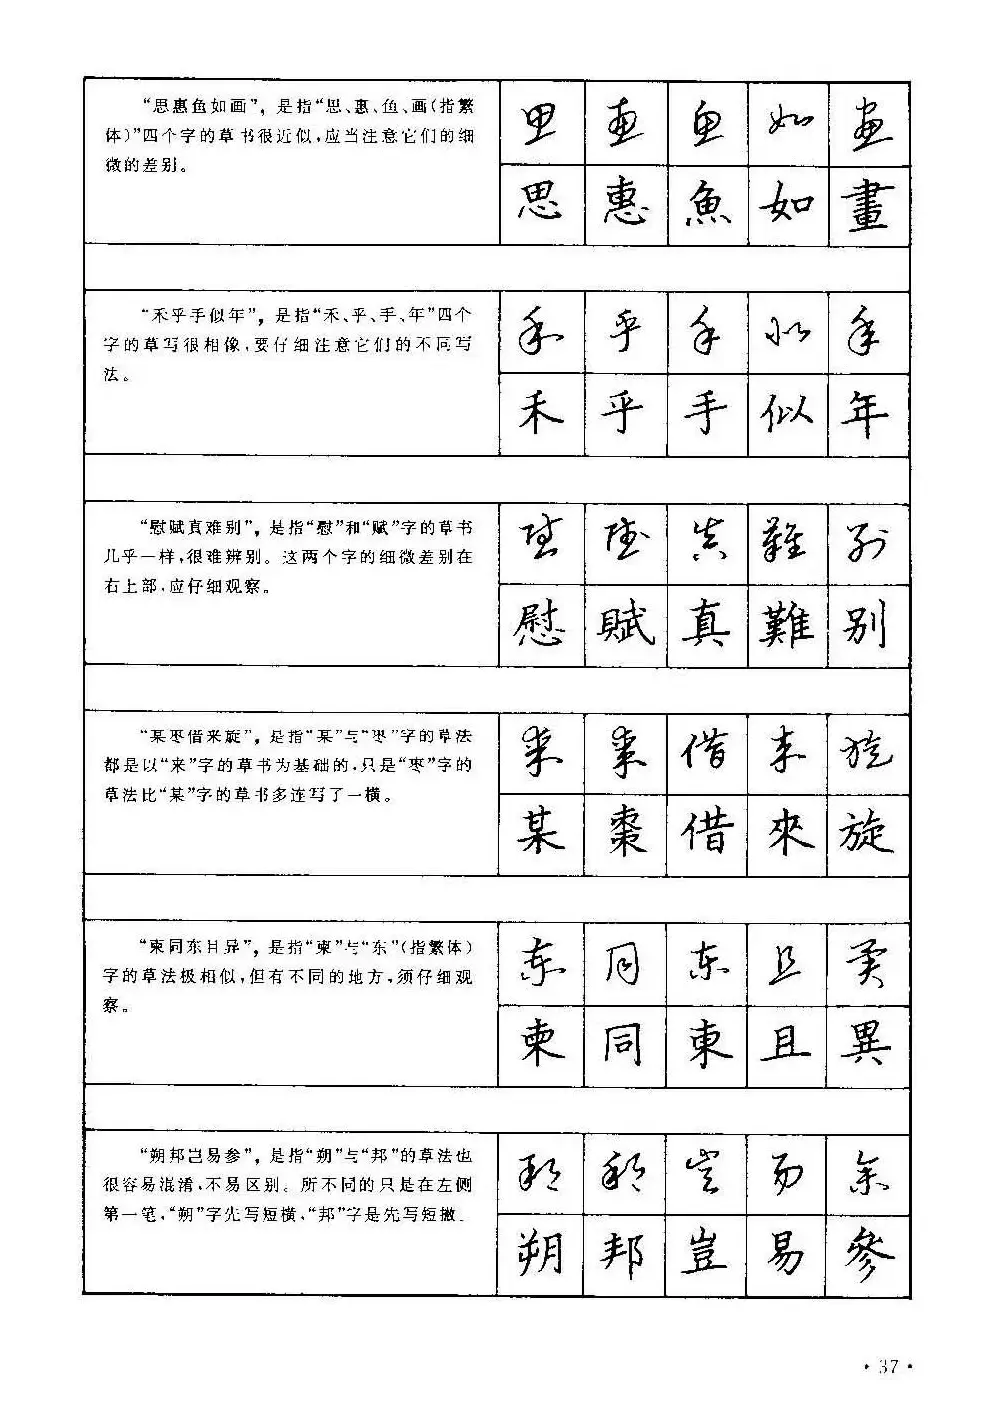 “思惠鱼如画”，是指“思、惠、鱼、画(指繁
体)”四个字的草书很近似，应当注意它们的细
微的差别。
思惠鱼如畫
思惠魚如畫
“禾乎手似年”，是指“禾、乎、手、年”四个
字的草写很相像，要仔细注意它们的不同写
法。
禾乎手似年
禾乎手似年
“慰赋真难别”，是指“慰”和“赋”字的草书
几乎一样，很难辨别。这两个字的细微差别在
右上部，应仔细观察。
慰賦真難别
慰賦真難别
“某枣借来旋”，是指“某”与“枣”字的草法
都是以“来”字的草书为基础的，只是“枣”字的
草法比“某”字的草书多连写了一横。
某棗借來旋
某棗借來旋
“柬同东且异”，是指“柬”与“东”(指繁体)
字的草法极相似，但有不同的地方，须仔细观
察。
柬同東且異
柬同東且異
“朔邦岂易参”，是指“朔”与“邦”的草法也
很容易混淆，不易区别。所不同的只是在左侧
第一笔，“朔”字先写短横，“邦”字是先写短撇。
朔邦豈易參
朔邦豈易參
·37·